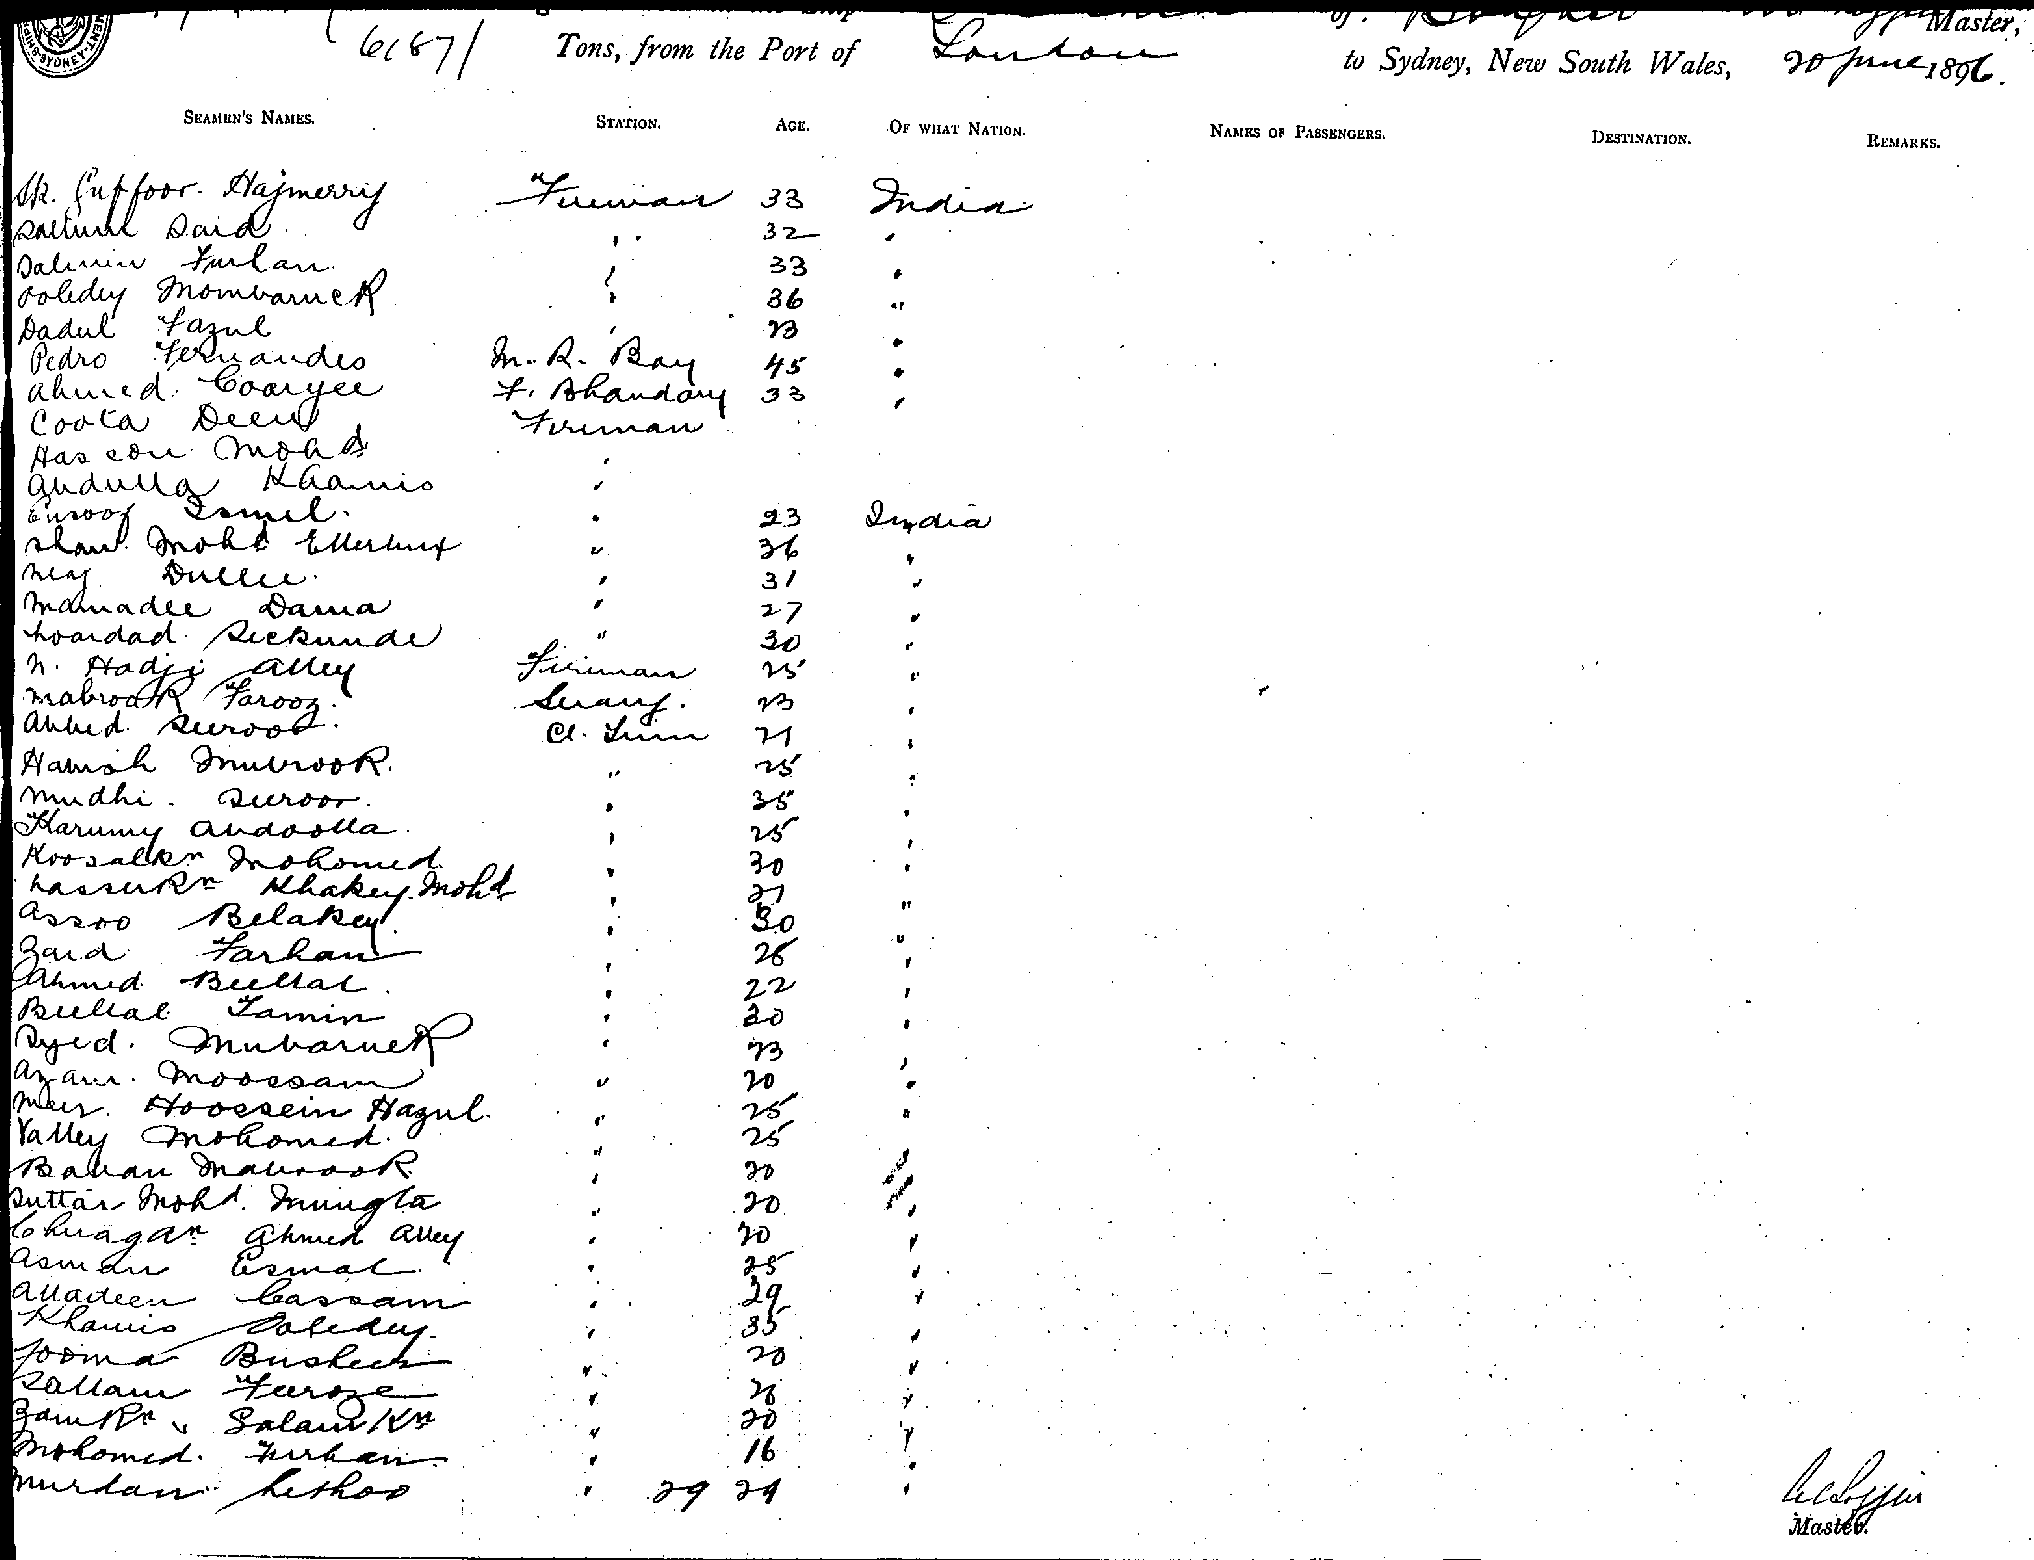 6187/ Tons, from the Port of London to Sydney, New South Wales, 20 June 1896.
Master,
SEAMEN'S NAMES. STATION. AGE. OF WHAT NATION. NAMES OF PASSENGERS. DESTINATION. REMARKS.
Sk. Guffoor. Hajmerrij Fireman 33 India
Sallim Said " 32 "
Salmin Furhan " 33 "
Mombaruck " 36 "
Dadul Fazul " 23 "
Pedro Fernandes M. R. Boy 45 "
Ahmed. Coaryee F. Bhandary 33 "
Coota Deen Fireman
Hascon Mohd "
Abdulla Khamis "
Esmil. " 23 India
Mohd " 36 "
Dullee. " 31 "
Mamadee Dama " 27 "
Seekunde " 30 "
N. Hadji Alley Fireman 25 "
Mabrook Farooz. Serang. 23 "
Abbed. Suroor. Cl. Trim 21 "
Habish Mubrook. " 25 "
Mudhi. Suroor. " 35 "
Karumy Abdoolla. " 25 "
Mohomed. " 30 "
Khakey. Mohd " 21 "
Assoo Belakey. " 30 "
Zaid Farhan " 26 "
Ahmed. Bellal. " 22 "
Bellal Tamin " 30 "
Syed. Mubaruck " 23 "
Azam. Moossam " 20 "
Meer. Hoossein Hazul. " 25 "
Valley Mohomed. " 25 "
Baban Mabrook. " 20 "
Suttar Mohd. Mungla " 20 "
Chiragdn Ahmed Alley " 20 "
Asman Esmal. " 25 "
Alladeen Cassam " 29 "
Khamis " 35 "
Jooma Busheer " 20 "
Sallam Feroze " 26 "
Zam Kn Salam Kn " 20 "
Mohomed. Furhan. " 16 "
Murdan " 29 29 "
Master.